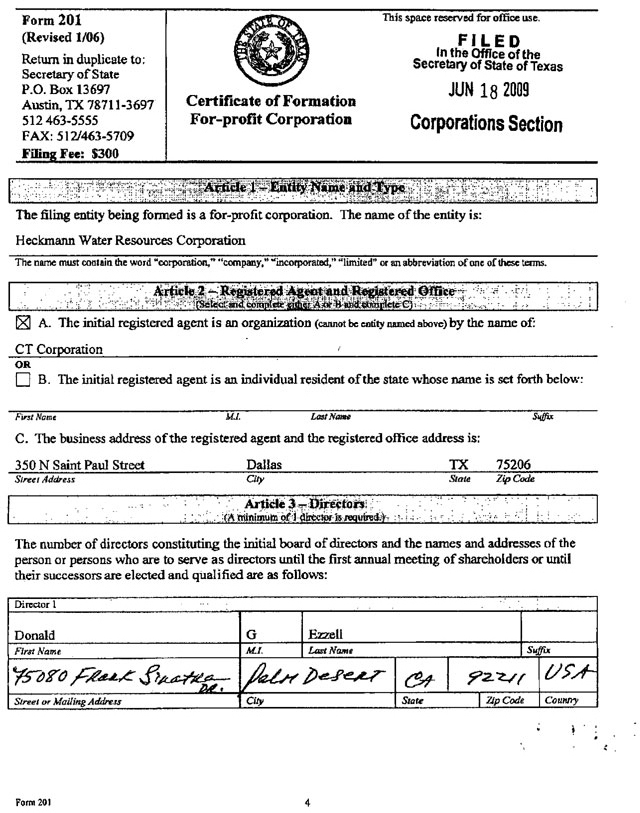 Form 201
(Revised 1/06)
Return in duplicate to:
Secretary of State
P.O. Box 13697
Austin, TX 78711-3697
512 463-5555
FAX: 512/463-5709
Filing Fee: $300
THE STATE OF TEXAS
Certificate of Formation
For-profit Corporation
This space reserved for office use.
FILED
In the Office of the
Secretary of State of Texas
JUN 18 2009
Corporations Section
Article 1 – Entity Name and Type
The filing entity being formed is a for-profit corporation. The name of the entity is:
Heckmann Water Resources Corporation
The name must contain the word "corporation," "company," "incorporated," "limited" or an abbreviation of one of these terms.
Article 2 – Registered Agent and Registered Office
(Select and complete either A or B and complete C)
☒ A. The initial registered agent is an organization (cannot be entity named above) by the name of:
CT Corporation
OR
☐ B. The initial registered agent is an individual resident of the state whose name is set forth below:
First Name M.I. Last Name Suffix
C. The business address of the registered agent and the registered office address is:
350 N Saint Paul Street Dallas TX 75206
Street Address City State Zip Code
Article 3 – Directors
(A minimum of 1 director is required.)
The number of directors constituting the initial board of directors and the names and addresses of the
person or persons who are to serve as directors until the first annual meeting of shareholders or until
their successors are elected and qualified are as follows:
Director 1
Donald G Ezzell
First Name M.I. Last Name Suffix
75080 Frank Sinatra DR. Palm Desert CA 92211 USA
Street or Mailing Address City State Zip Code Country
Form 201 4